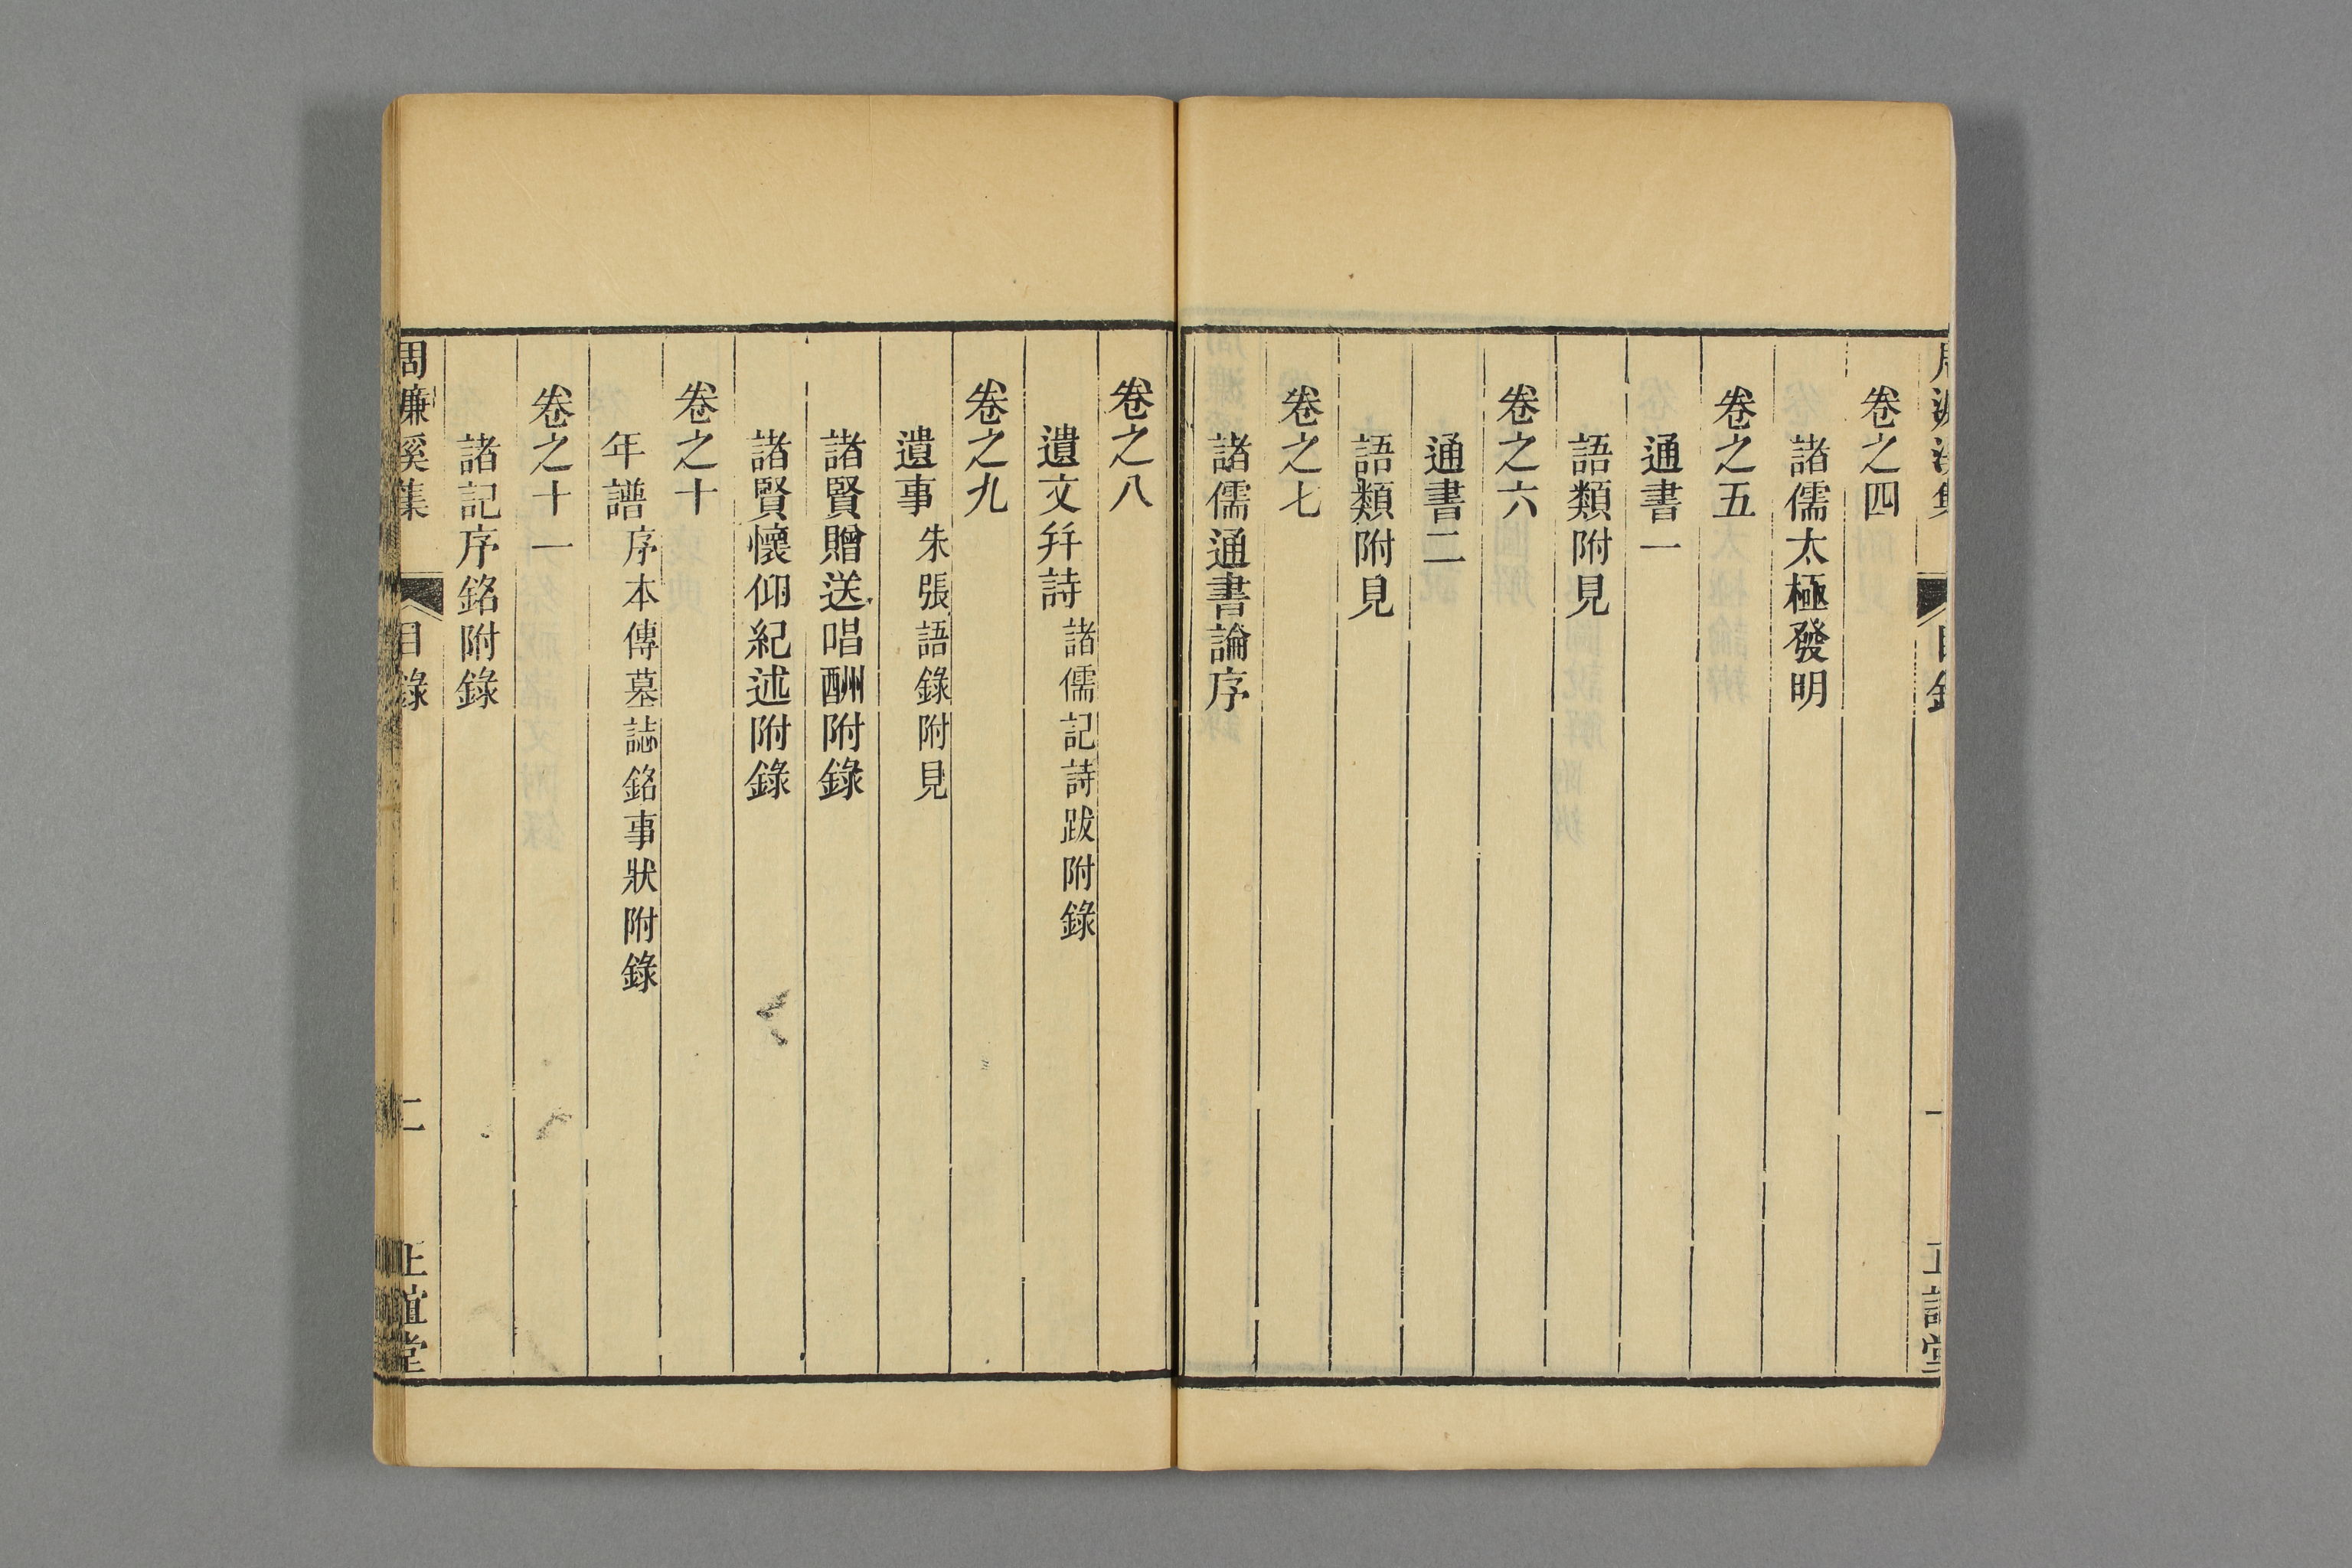 卷之四
諸儒太極發明
卷之五
通書一
語類附見
卷之六
通書二
語類附見
卷之七
諸儒通書論序
卷之八
遺文幷詩 諸儒記詩跋附錄
卷之九
遺事 朱張語錄附見
諸賢贈送唱酬附錄
諸賢懷仰紀述附錄
卷之十
年譜 序本傳墓誌銘事狀附錄
卷之十一
諸記序銘附錄
周濂溪集 目錄 二 正誼堂